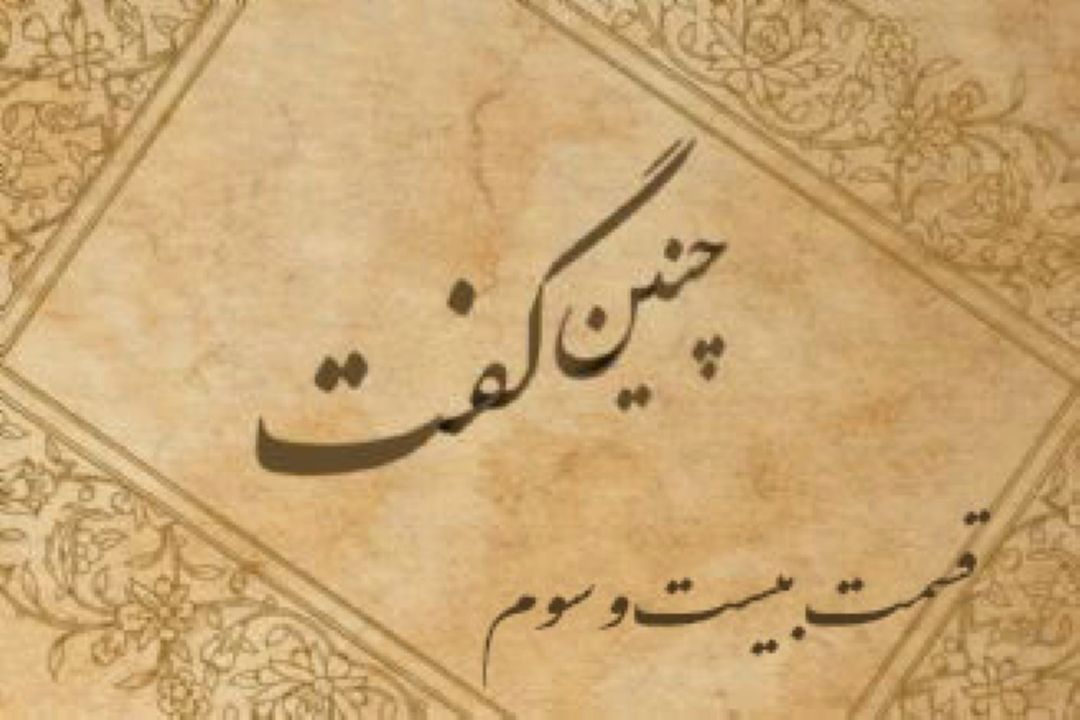 چنین گفت
قسمت بیست و سوم